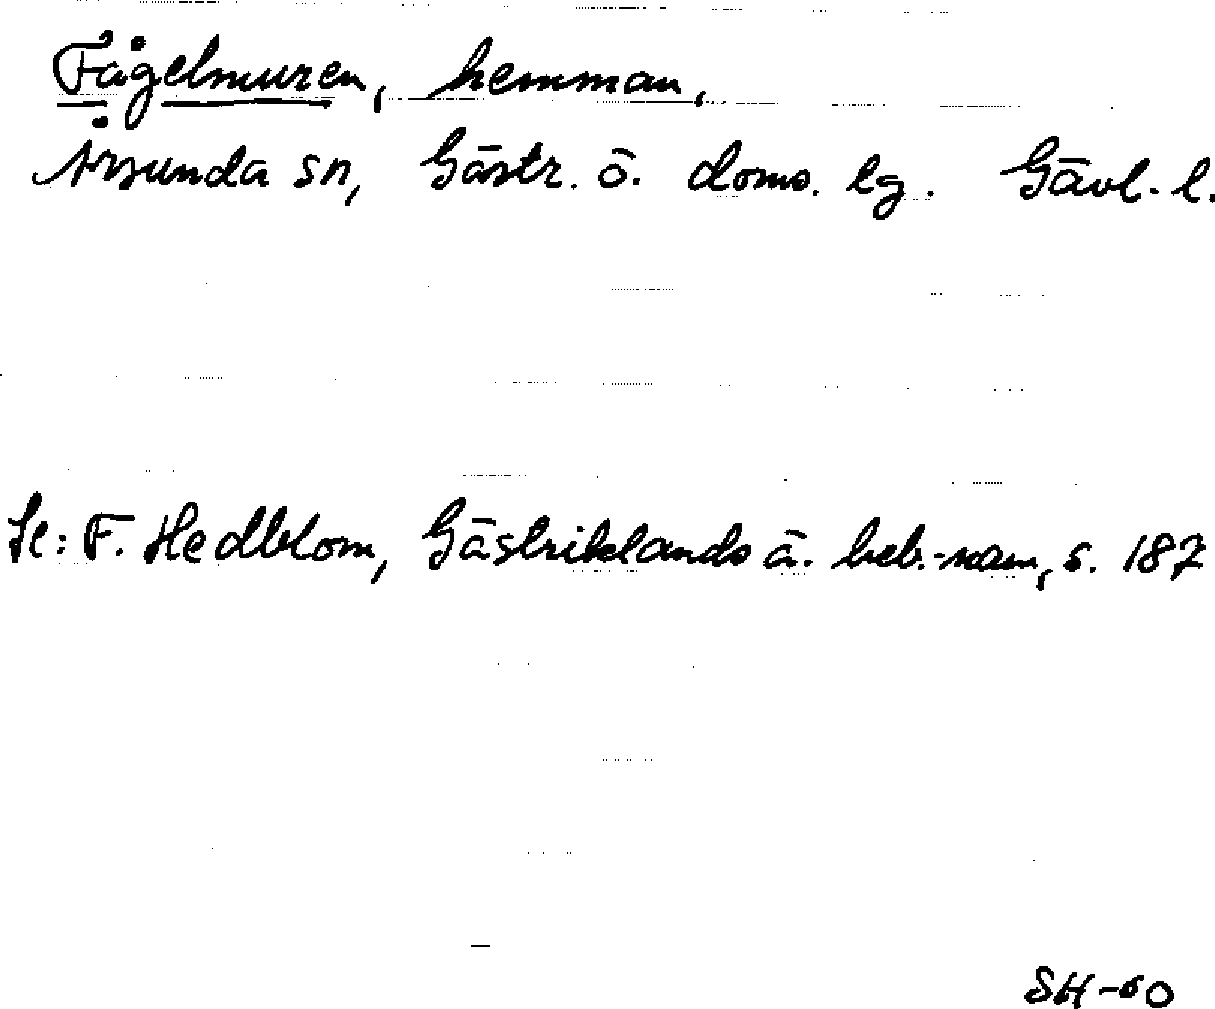 Fågelmuren, hemman,
Årsunda sn, Gästr. ö. doms. lg. Gävl. l.
Se: F. Hedblom, Gästriklands ä. beb.-namn, s. 187
SH-60